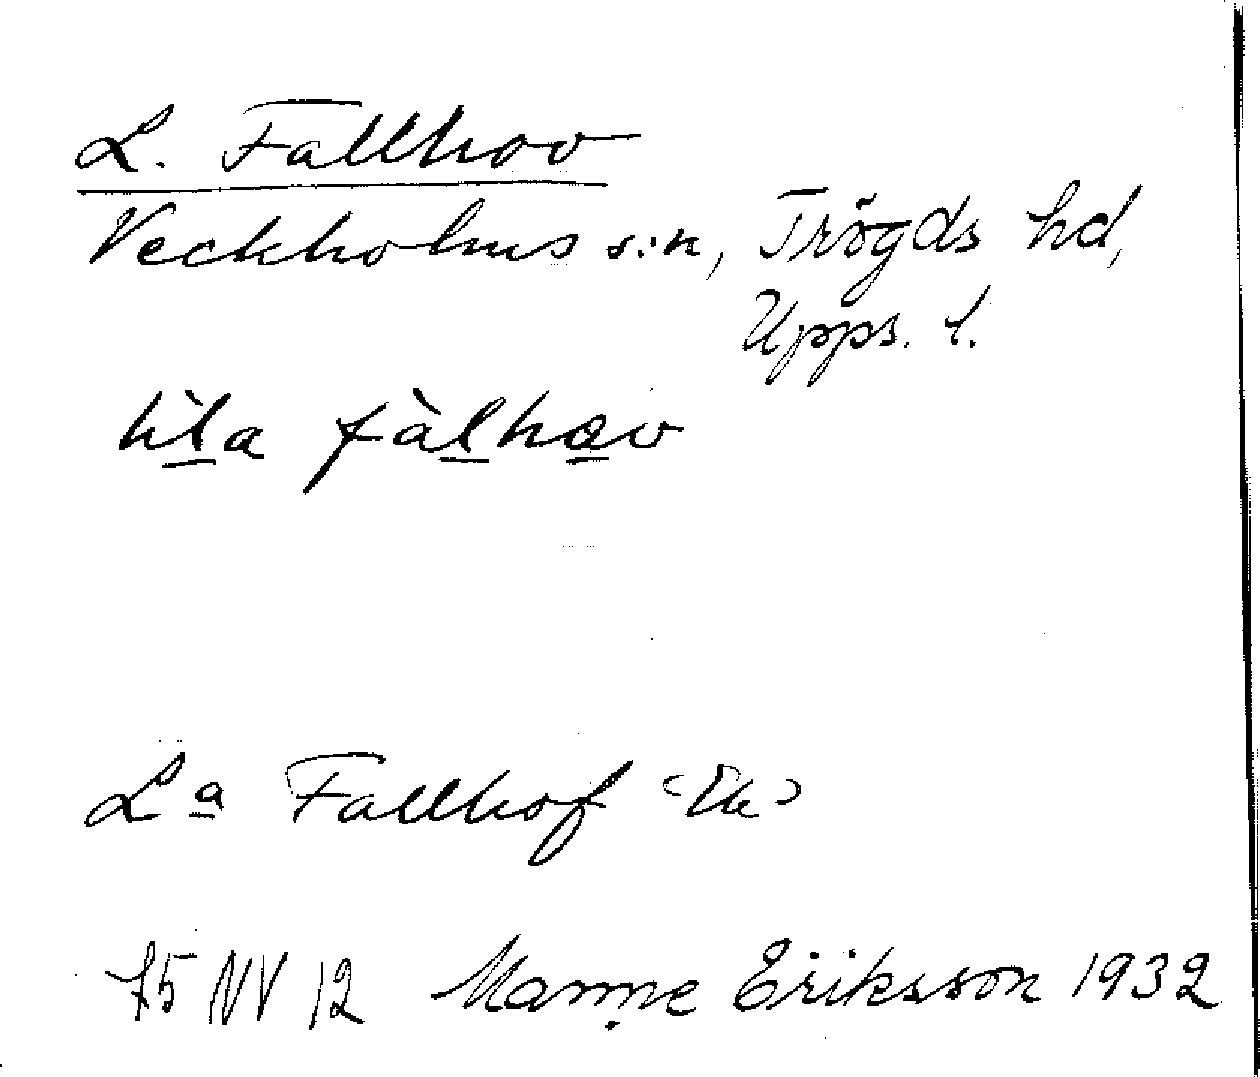 L. Fallhov
Veckholms s:n, Trögds hd,
Upps. l.
Lª Fallhof
75 NV 12 Manne Eriksson 1932